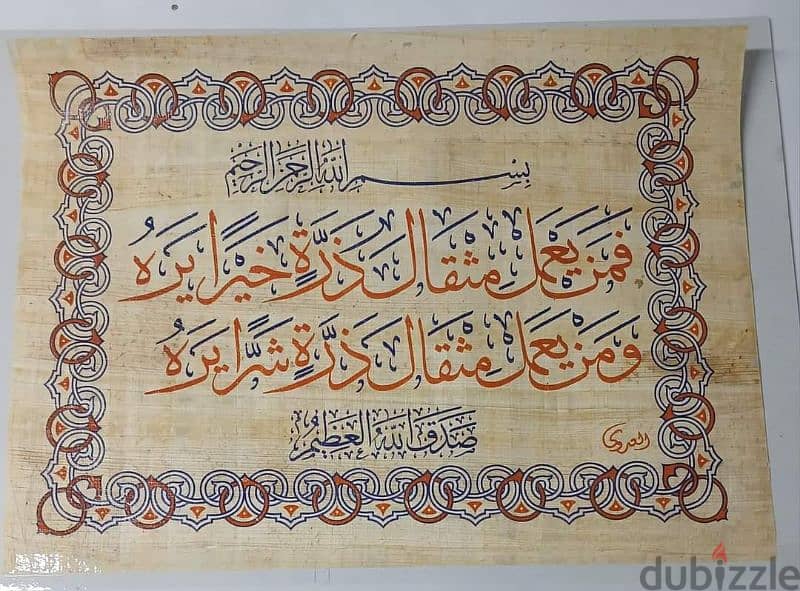 بِسْمِ اللَّهِ الرَّحْمَنِ الرَّحِيمِ
فَمَنْ يَعْمَلْ مِثْقَالَ ذَرَّةٍ خَيْرًا يَرَهُ
وَمَنْ يَعْمَلْ مِثْقَالَ ذَرَّةٍ شَرًّا يَرَهُ
صَدَقَ اللَّهُ الْعَظِيمُ
dubizzle